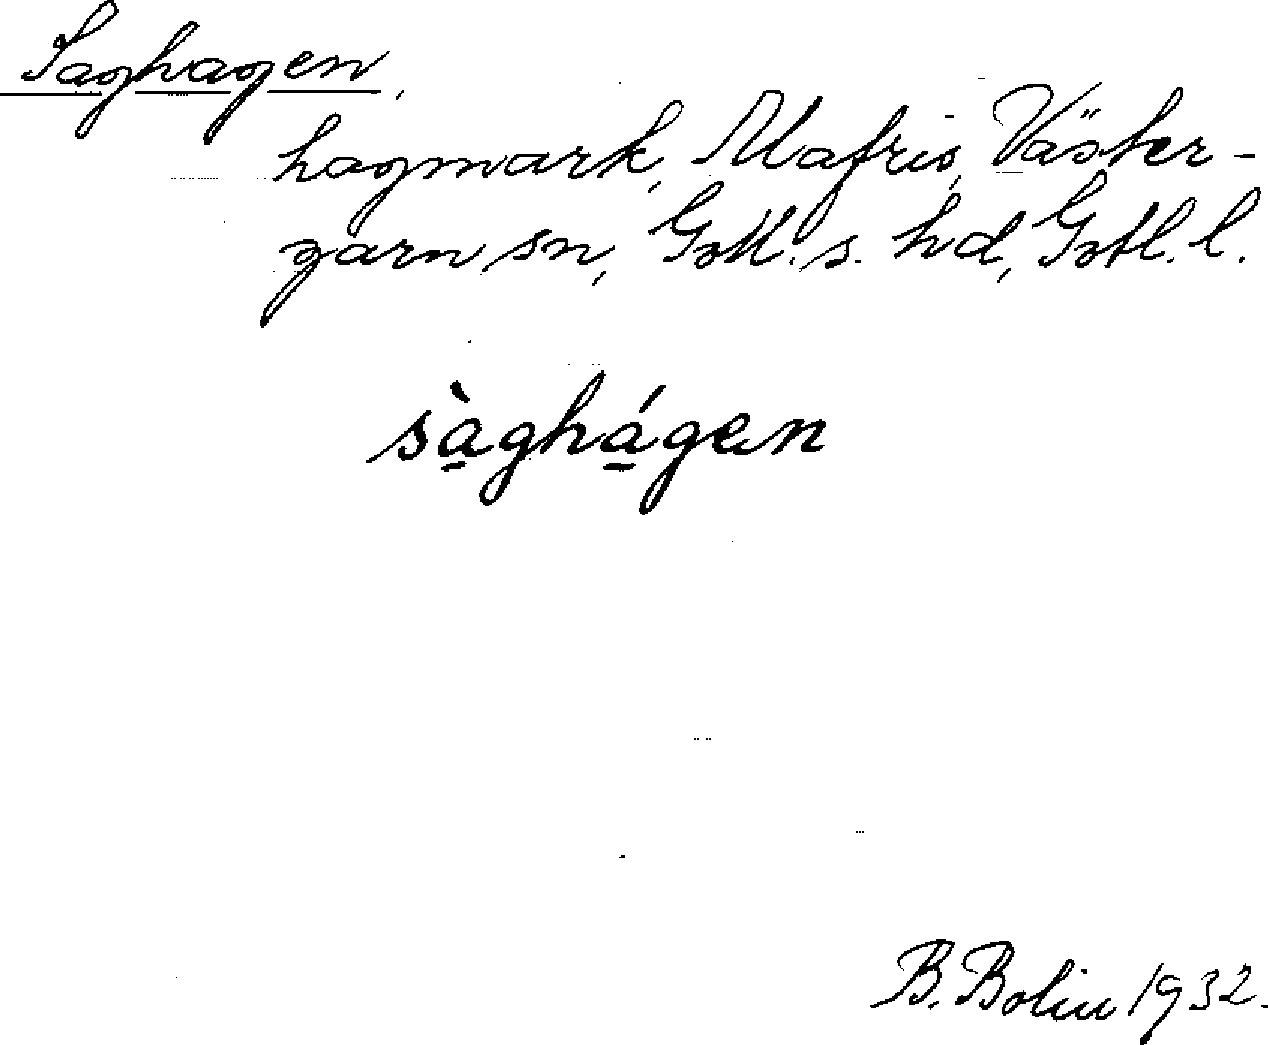 Saghagen,
hagmark, Mafris, Väster-
garn sn, Gotl. s. hd, Gotl. l.
sàghágen
B. Bolin 1932.